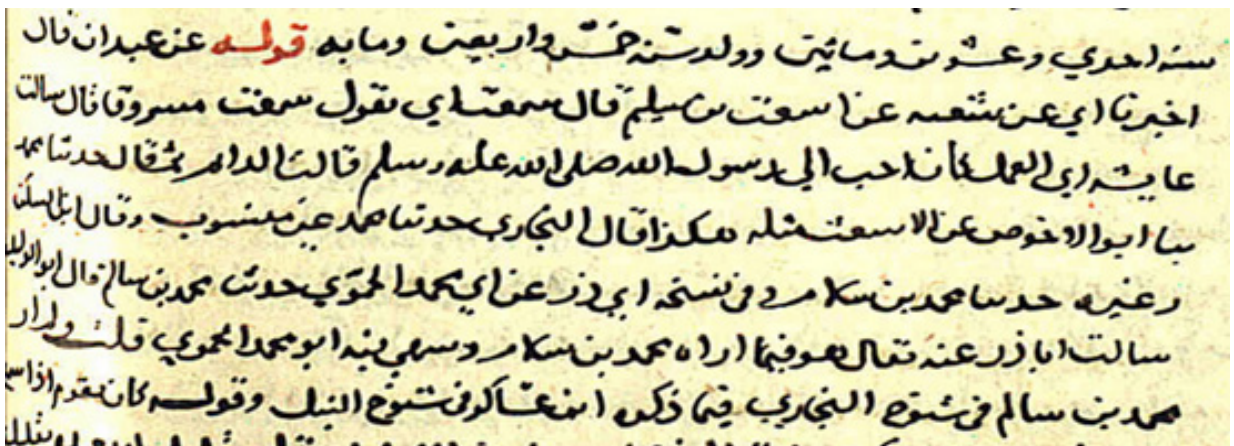 سنه احدي وعشرين ومائتين وولد سنه خمس واربعين ومايه قوله عن عبدان قال
اخبرنا ابي عن شعبه عن اشعث بن سليم قال سمعت ابي يقول سمعت مسروقا قال سالت
عايشه اي العمل كان احب الي رسول الله صلى الله عليه وسلم قالت الدائم ثم قال حدثنا محمد
بنا ابو الاخوص عن الاشعث مثله هكذا قال البخاري حدثنا محمد غير منسوب وقال ابن السكن
وغيره حدثنا محمد بن سلام وفي نسخه ابي ذر عن ابي محمد الحموي حدثنا محمد بن سالم قال ابو الوليد
سالت ابا ذر عنه فقال هو فيما اراه محمد بن سلام وسهي فيه ابو محمد الحموي قلت
محمد بن سالم في شيوخ البخاري فيما ذكره ابن عساكر في شيوخ النبل وقوله كان يقوم اذا